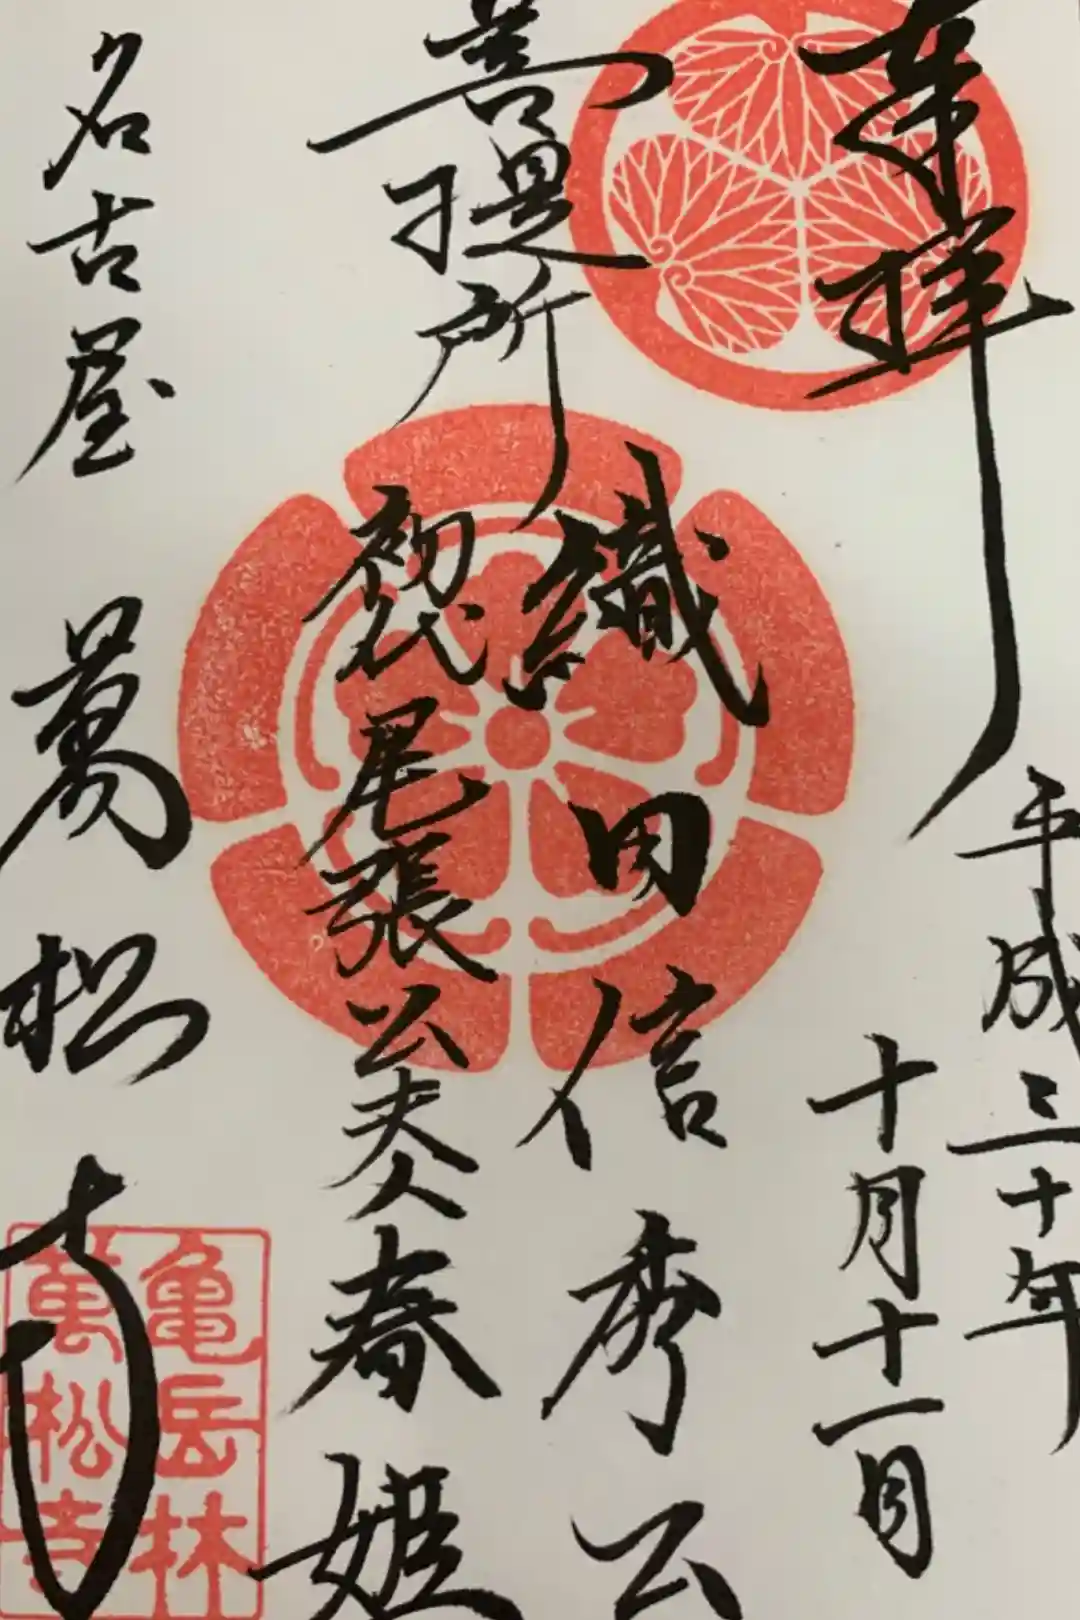 奉拝
平成三十年
十月十一日
菩提所
織田信秀公
初代尾張公夫人春姫
名古屋
萬松寺
亀岳林
萬松寺